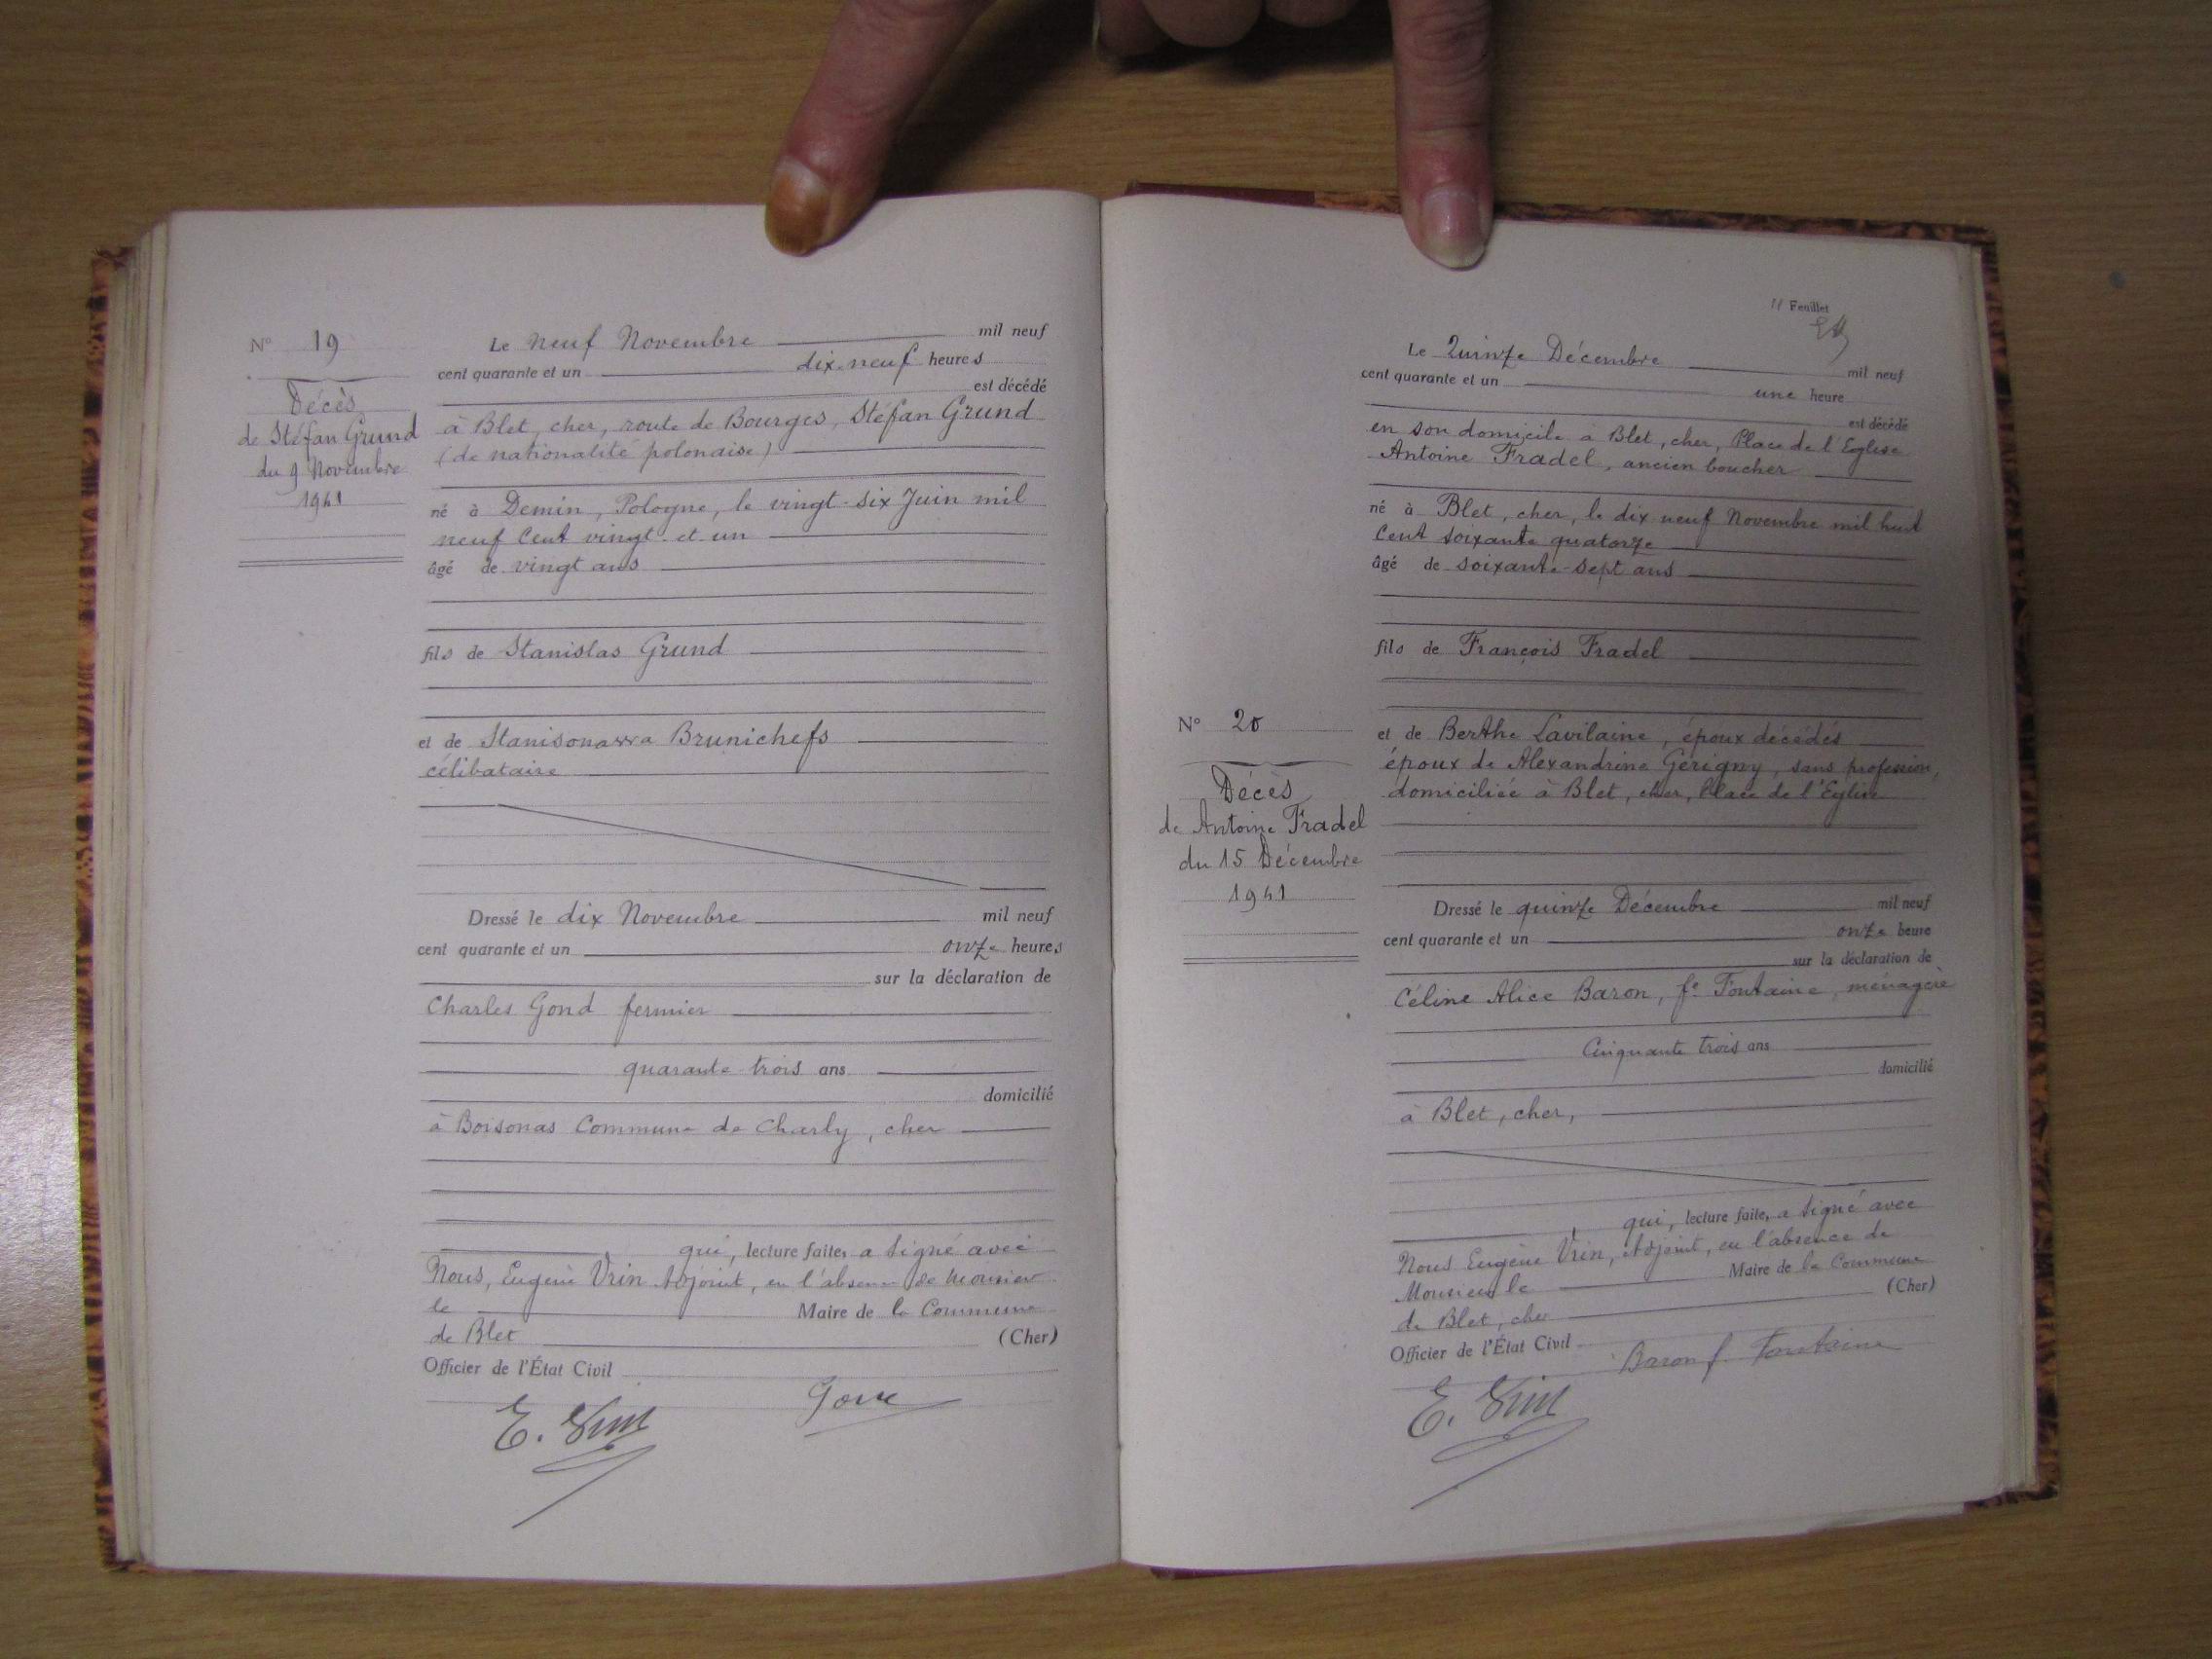 N° 19
Décès
de Stéfan Grund
du 9 Novembre
1941
Le neuf Novembre mil neuf
cent quarante et un dix-neuf heures
est décédé
à Blet, cher, route de Bourges, Stéfan Grund
(de nationalité polonaise)
né à Demin, Pologne, le vingt-six Juin mil
neuf Cent vingt et un
âgé de vingt ans
fils de Stanislas Grund
et de Brunichefs
célibataire
Dressé le dix Novembre mil neuf
cent quarante et un onze heures
sur la déclaration de
Charles Gond fermier
quarante trois ans
domicilié
à Boisonas Commune de Charly, cher
qui, lecture faite, a signé avec
Nous, Eugène Vrin Adjoint, en l'absence de Monsieur
le Maire de la Commune
de Blet (Cher)
Officier de l'État Civil
E. Vrin
11 Feuillet
Le Quinze Décembre mil neuf
cent quarante et un une heure
est décédé
en son domicile à Blet, cher, Place de l'Eglise
Antoine Fradel, ancien boucher
né à Blet, cher, le dix neuf Novembre mil huit
Cent soixante quatorze
âgé de soixante-sept ans
fils de François Fradel
N° 20
Décès
de Antoine Fradel
du 15 Décembre
1941
et de Berthe Lavilaine, époux décédés
époux de Alexandrine Gérigny, sans profession,
domiciliée à Blet, cher, Place de l'Eglise
Dressé le quinze Décembre mil neuf
cent quarante et un onze heure
sur la déclaration de
Céline Alice Baron, fe Fontaine, ménagère
Cinquante trois ans
domicilié
à Blet, cher,
qui, lecture faite, a signé avec
Nous Eugène Vrin, Adjoint, en l'absence de
Monsieur le Maire de la Commune
de Blet, cher (Cher)
Officier de l'État Civil
Baron f. Fontaine
E. Vrin